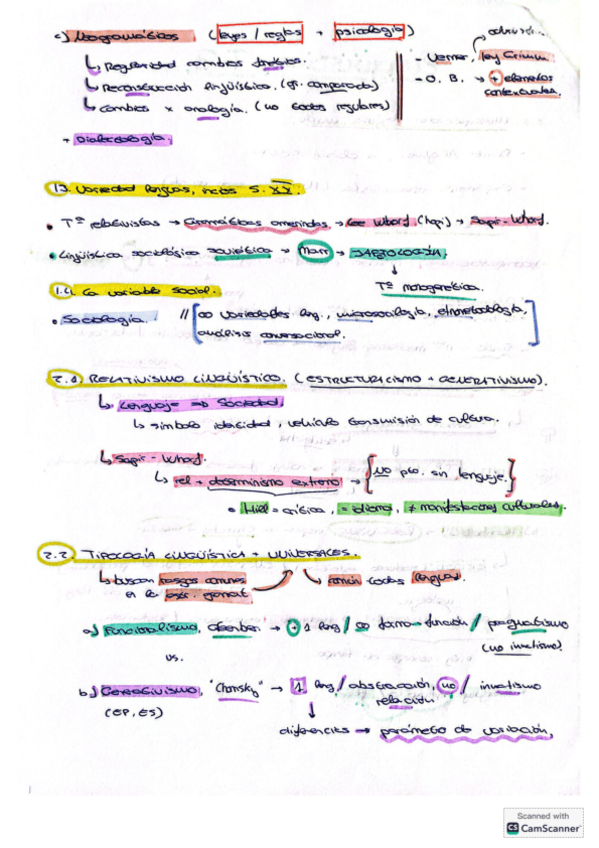 c) Neogramáticos (leyes / reglas + psicología)
↳ Regularidad cambios fonéticos. - Verner, ley Grimm
↳ Reconstrucción lingüística. (gr. comparada) - O. B. → + elementos contextuales.
↳ Cambios x analogía. (no todos regulares)
+ Dialectología
1.3. Variedad lenguas, inicios S. XX.
• Tª relativistas → Gramáticas amerindias → Lee Whorf (hopi) → Sapir-Whorf.
• Lingüística sociológica soviética → Marr → JAFTOLOGÍA.
↓
Tª monogenética.
1.4. La variable social.
• Sociología. // [ ∞ variedades ling., microsociología, etnometodología,
análisis conversacional. ]
2.1. RELATIVISMO LINGÜÍSTICO. (ESTRUCTURALISMO + GENERATIVISMO).
↳ Lenguaje => Sociedad
↳ símbolo identidad, vehículo transmisión de cultura.
↳ Sapir-Whorf.
↳ rel + determinismo extremo → { NO pto. sin lenguaje. }
• Hall = crítica, = idioma, ≠ manifestaciones culturales.
2.2. TIPOLOGÍA LINGÜÍSTICA + UNIVERSALES.
↳ buscan rasgos comunes ↳ común todas lenguas.
en la
a) Funcionalismo, → + 1 leng / ∞ forma-función / pragmatismo
(no innatismo)
vs.
b) Generativismo, "Chomsky" → 1 leng / abstracción, no / innatismo
relación
(EP, ES) ↓
diferencias → parámetro de variación.
Scanned with
CS CamScanner